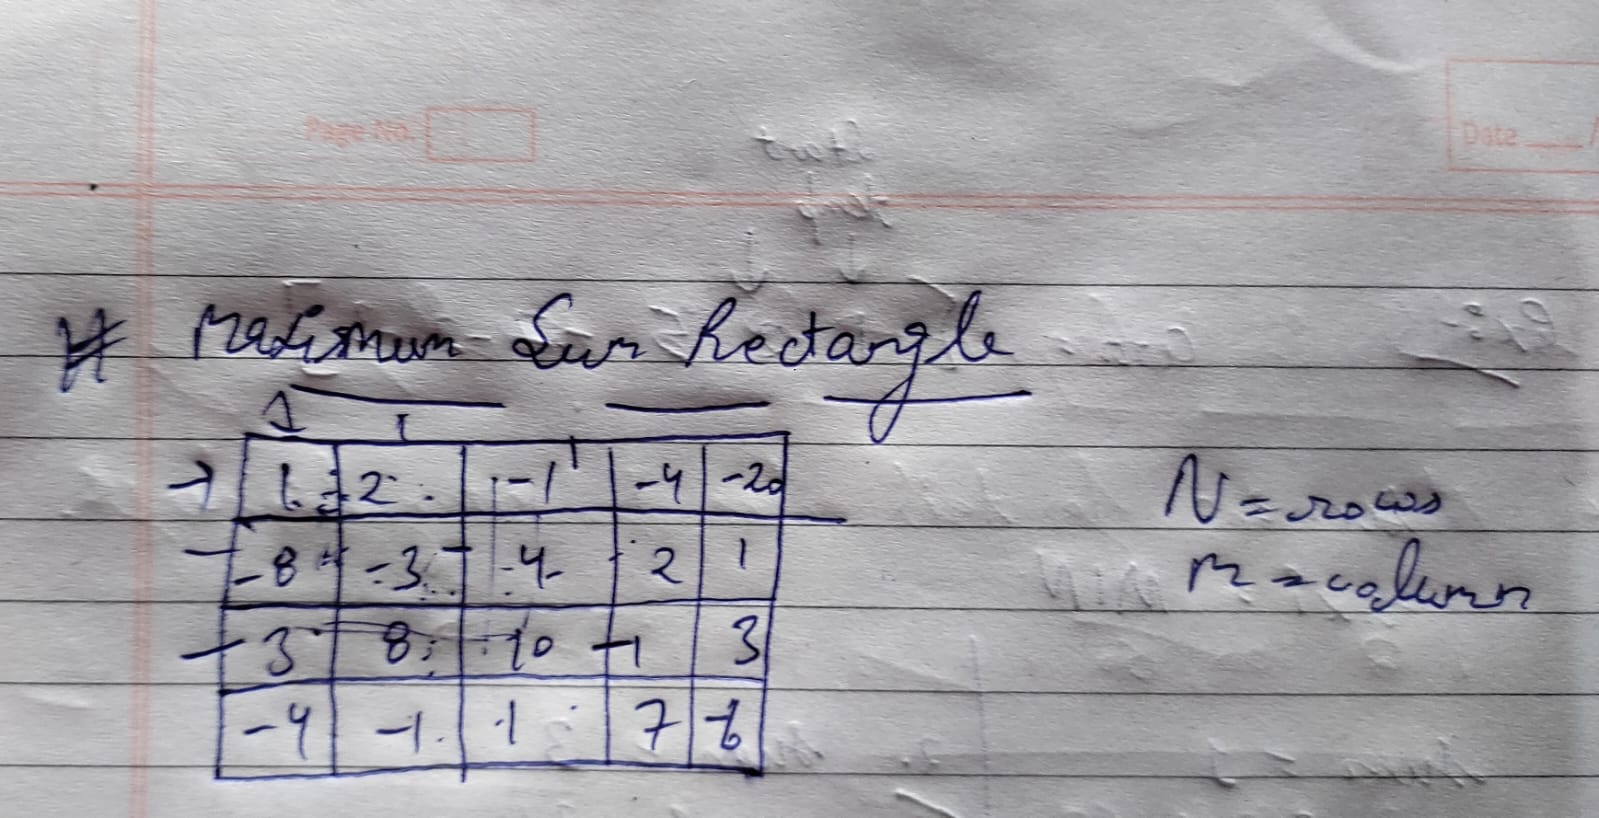 Page No.
Date
# Maximum Sum Rectangle
1 2 -1 -4 -20
-8 -3 4 2 1
3 8 10 1 3
-4 -1 1 7 -6
N = rows
m = column